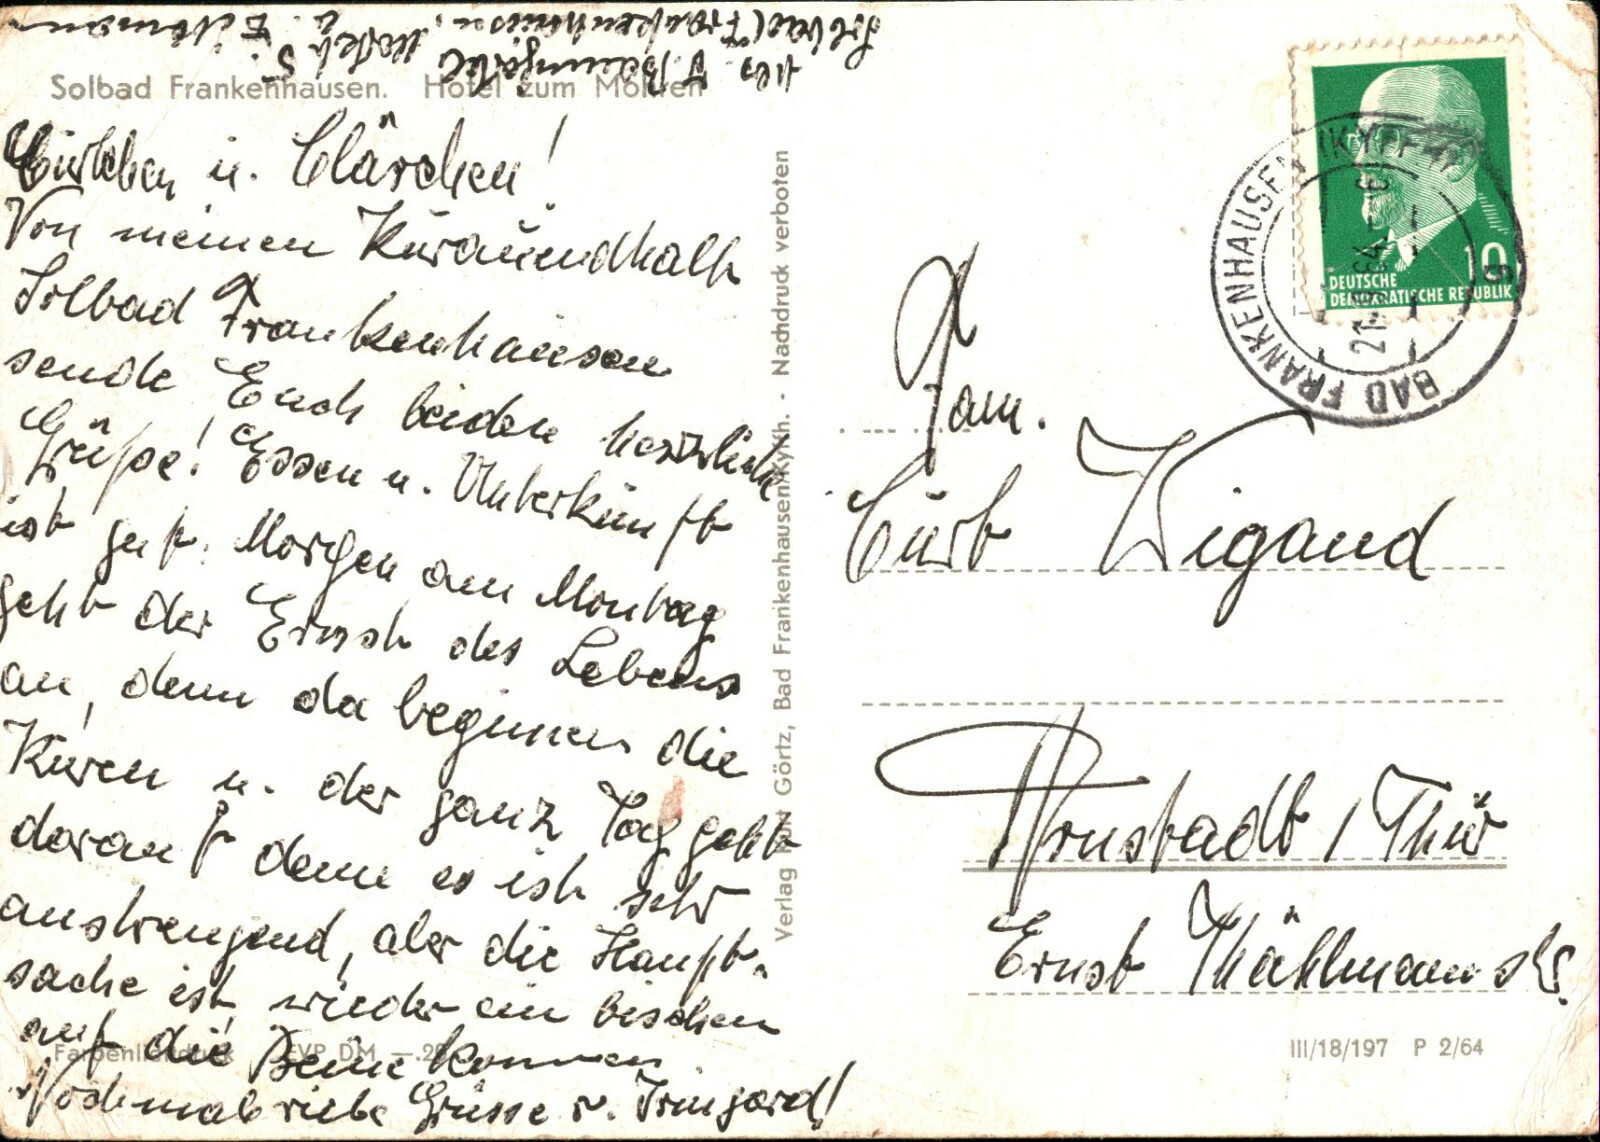 Solbad Frankenhausen. Hotel zum Mohren
Solbad Frankenhausen,
Curtchen u. Clärchen!
Von meinen Kuraufendhalt
Solbad Frankenhausen
sende Euch beiden herzliche
Grüße! Essen u. Unterkunft
ist gut. Morgen am Montag
geht der Ernst des Lebens
an, denn da beginnen die
Kuren u. der ganz Tag geht
darauf denn es ist sehr
anstrengend, aber die Haupt-
sache ist, wieder ein bischen
auf die Beine kommen
Nochmals liebe Grüsse v. Irmgard!
Farbenlichtdruck EVP DM —.20
Verlag Kurt Görtz, Bad Frankenhausen/Kyffh. · Nachdruck verboten
BAD FRANKENHAUSEN (KYFFH)
21.-9.64.-
10
DEUTSCHE
DEMOKRATISCHE REPUBLIK
Fam.
Curt Wigand
Arnstadt / Thür
Ernst Thählmannstr.
III/18/197 P 2/64